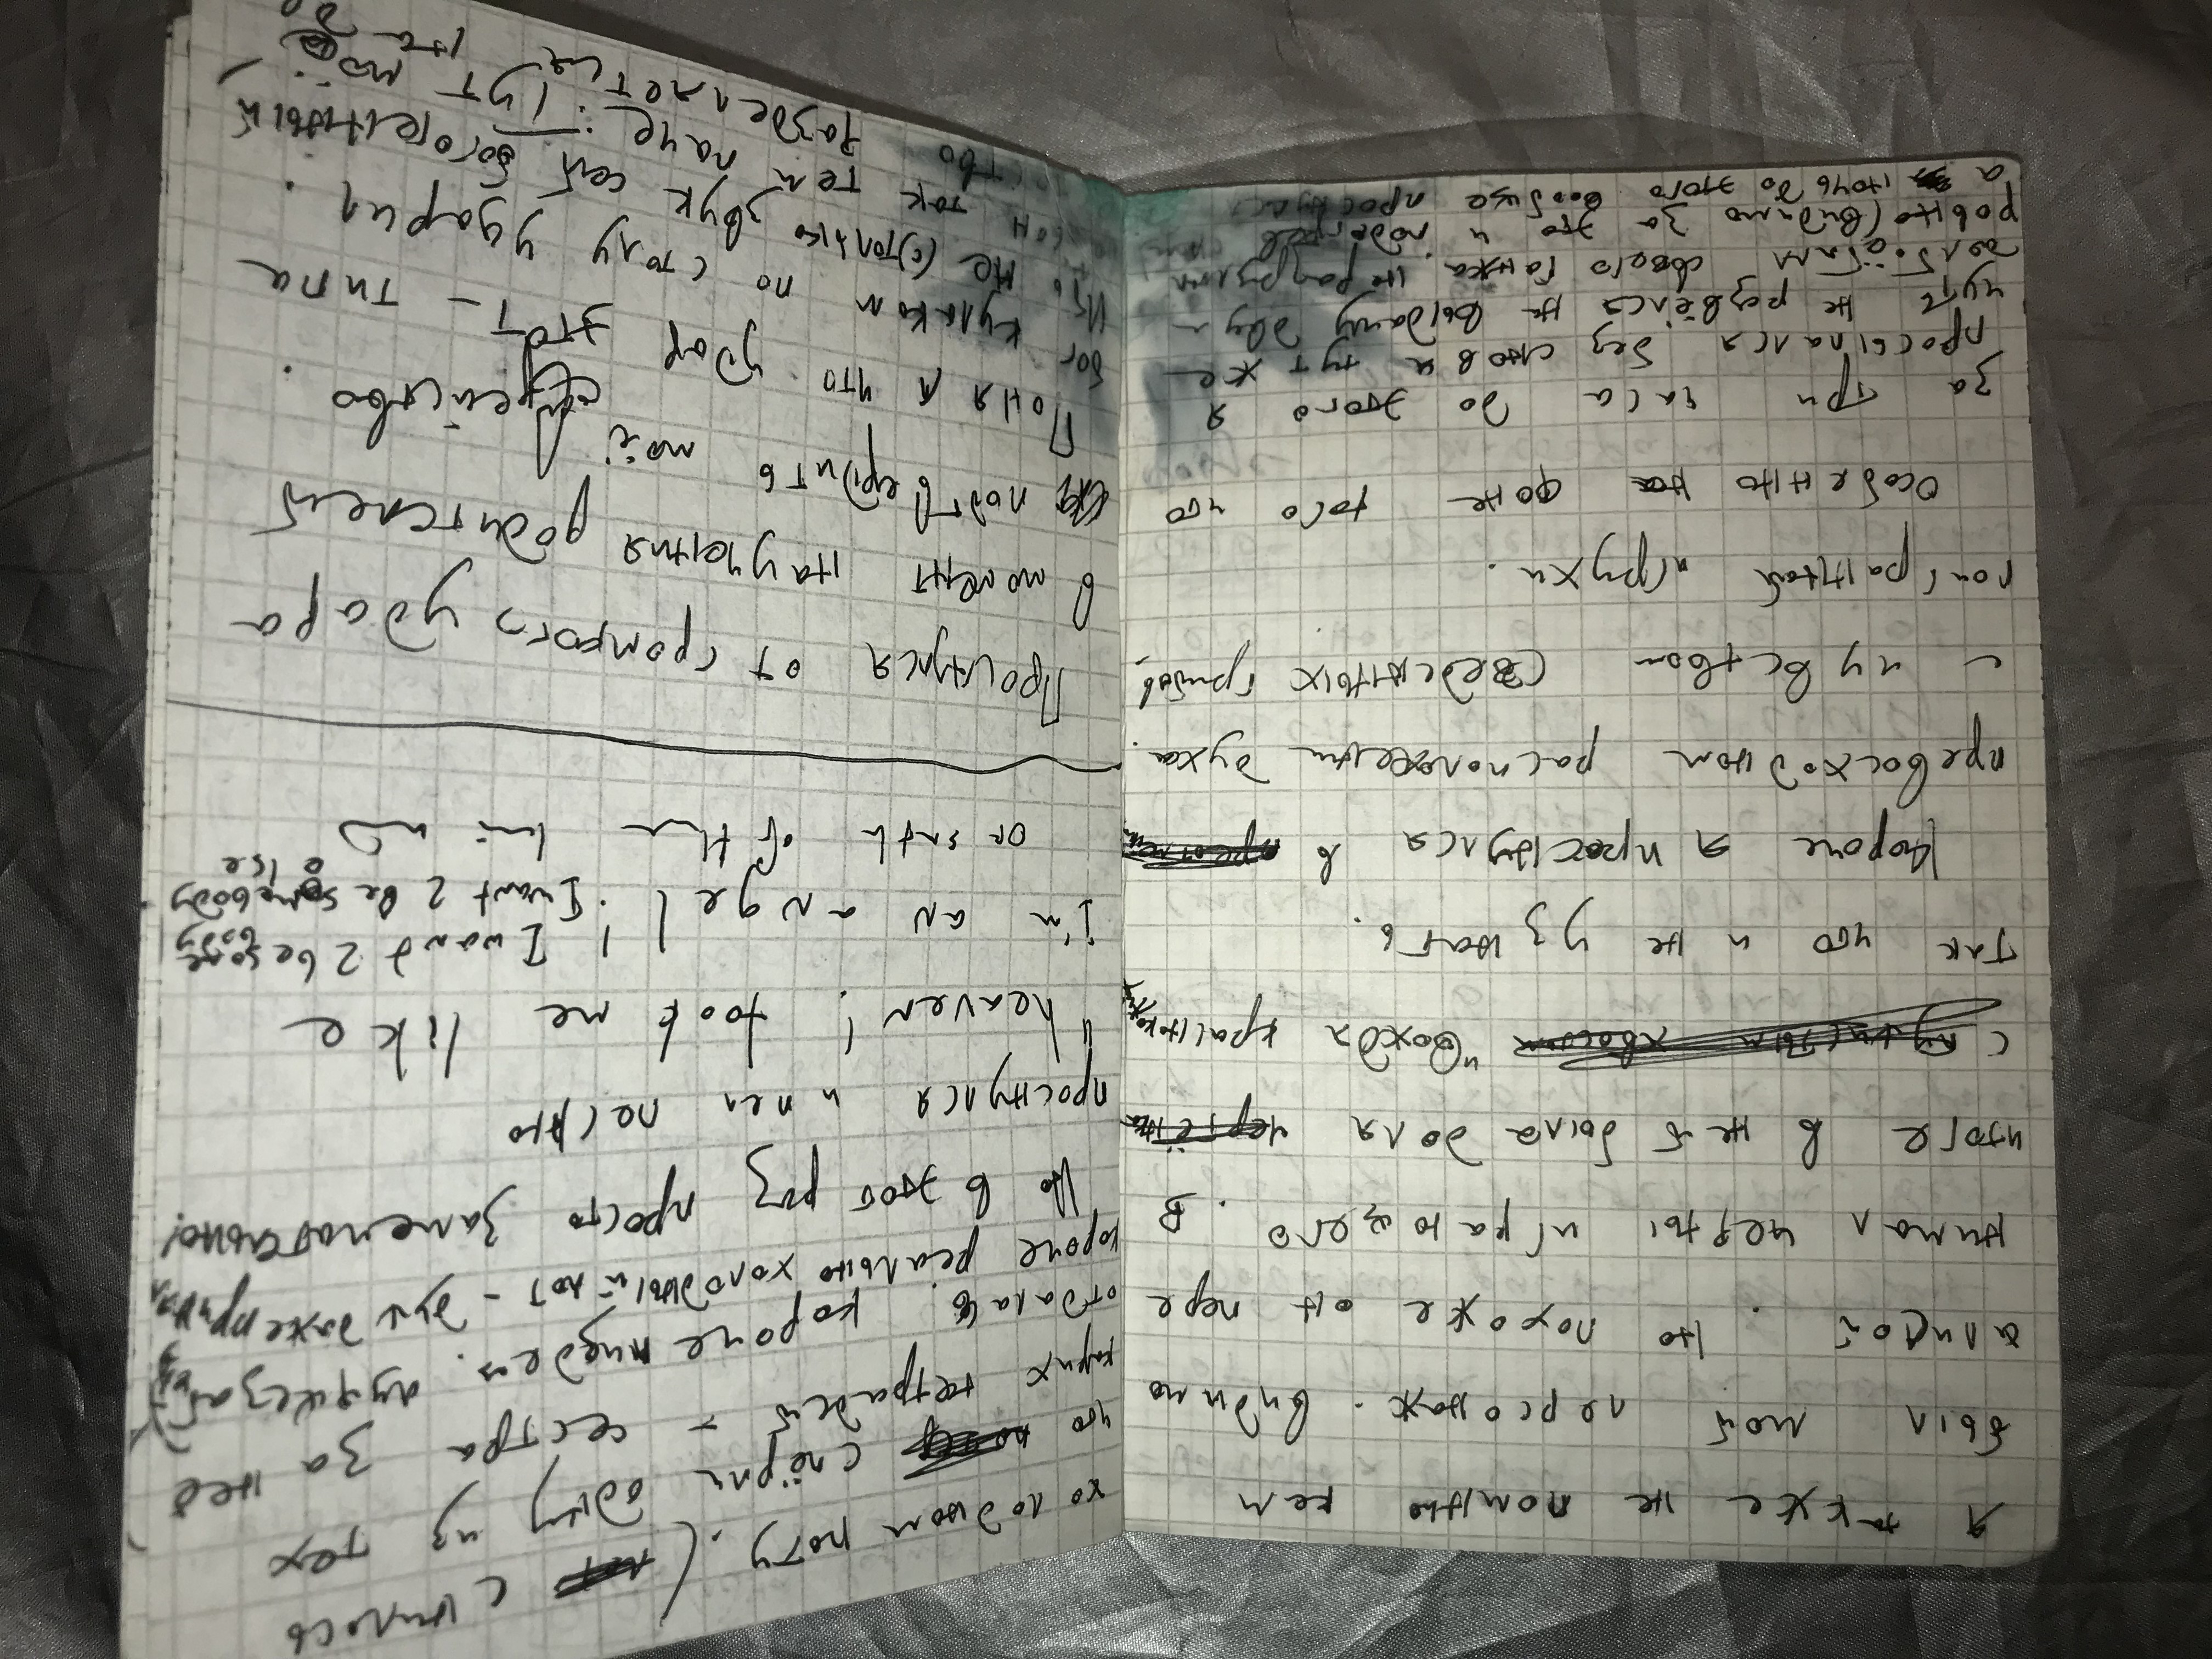 Я также не помню кем
был мой персонаж - видимо
алисой. Но похоже он пере
нимал черты играющего. В
итоге в ней была доля чертёнка
с пушистым хвостом "Вождя краснокожих
так что и не узнать.
Короче я проснулся в
превосходном расположени духа.
с чувством съеденных грибов,
поигранной игрухи.
Особенно на фоне того что
за три часа до этого я
просыпался без снов и тут же
чуть не развёлся на выдачу двум
долбоёбам своего ганжа, но разрулил
ровно (видимо за это и подогрев
а ночь до этого вообще проснулся
холодном поту. (снилось
что спёрли одну из тех
тетрадей - сестра за неё
отдалась. короче пиздец.
короче реально холодный пот - душ даже принял
Но в этот раз просто замечательно!
проснулся и пел песню
"heaven! took me like
I'm an angel! I want 2 be somebody
I want 2 be somebody
else
or smth of the kind
Проснулся от громкого удара
в момент научения родителей
подтвердить моё
Понял что удар этот - типа
бог кулаком по столу ударил.
не (с)только звук сей богогенный,
сон так тем паче. Тут моё
ство разделяется на